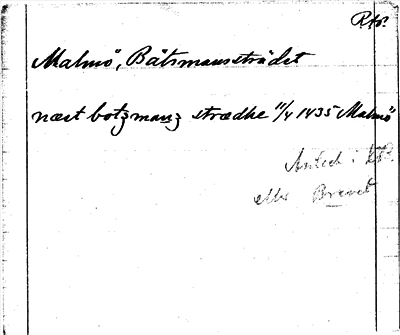 Malmö, Båtsmansträdet
næst botzmanz strædhe 11/4 1435 Malmö
Anteckn i
eller Brevet